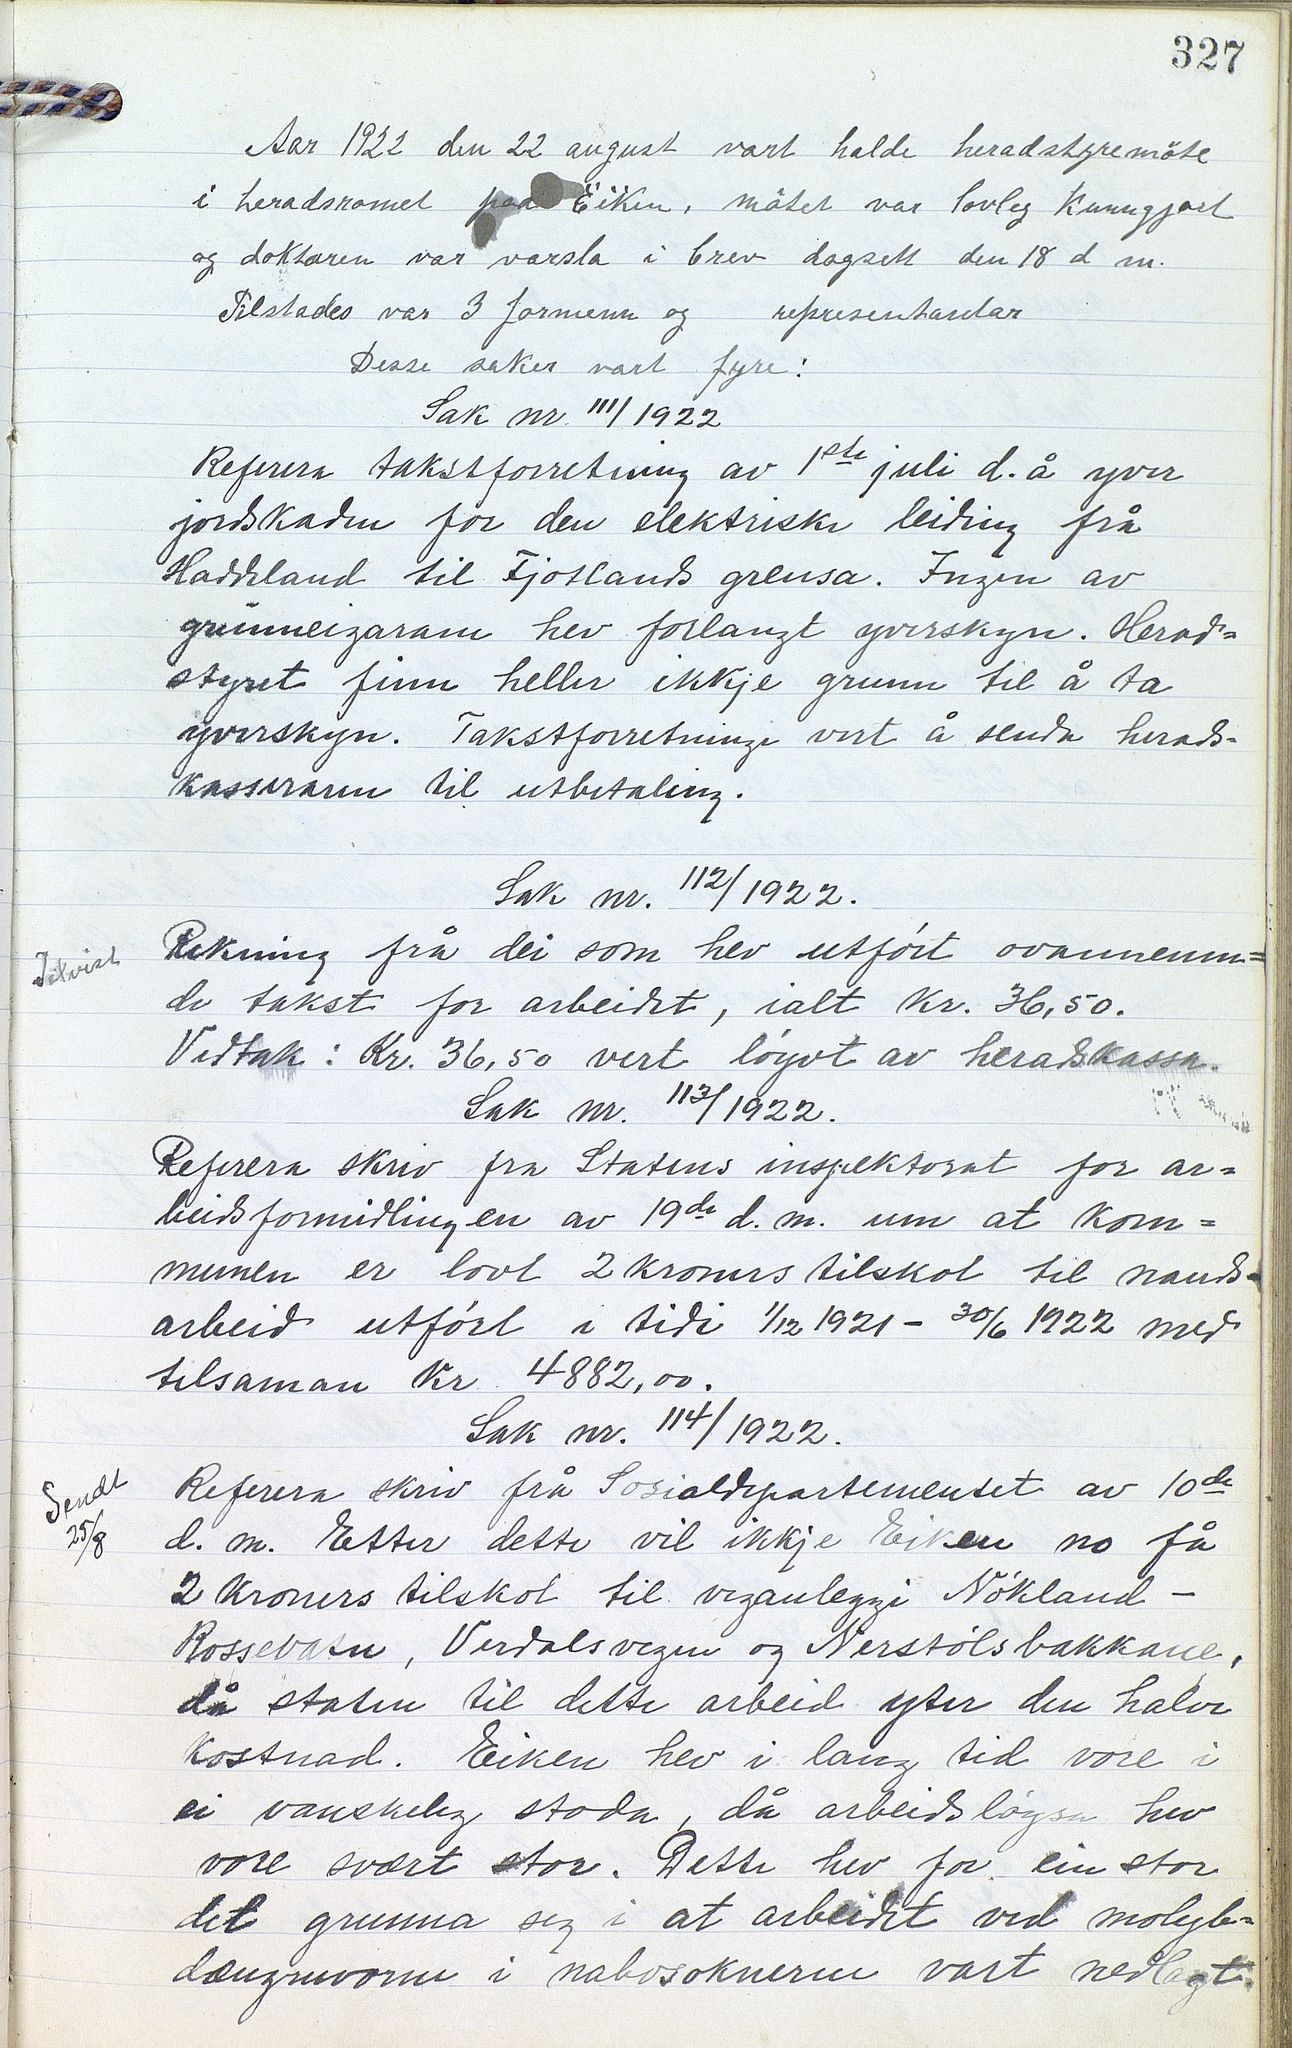 327
Aar 1922 den 22 august vart halde heradstyremöte
i heradsromet paa Eiken, mötet var lovleg kunngjort
og doktaren var varsla i brev dagsett den 18 d m.
Tilstades var 3 formenn og representantar
Desse saker vart fyre:
Sak nr. 111/1922
Referera takstforretning av 1ste juli d. å yver
jordskaden for den elektriske leiding frå
Haddeland til Fjotlands grensa. Ingen av
grunneigaram hev forlangt yverskyn. Herad=
styret finn heller ikkje grunn til å ta
yverskyn. Takstforretninge vert å senda herads-
kasseraren til utbetaling.
Sak nr. 112/1922.
Tilvist
Rekning frå dei som hev utført ovannemn=
de takst for arbeidet, ialt kr. 36,50.
Vedtak: Kr. 36,50 vert løyvt av heradskassa.
Sak nr. 113/1922.
Referera skriv fra Statens inspektorat for ar=
beidsformidlingen av 19de d. m. um at kom=
munen er lovt 2 kroners tilskot til nauds-
arbeid utført i tidi 1/12 1921 - 30/6 1922 med
tilsaman kr 4882,00.
Sak nr. 114/1922.
Sendt
25/8
Referera skriv frå Sosialdepartementet av 10de
d. m. Etter dette vil ikkje Eiken no få
2 kroners tilskot til veganleggi Nökland -
Rossevatn, Verdalsvegen og Nerstølsbakkane,
då staten til dette arbeid yter den halve
kostnad. Eiken hev i lang tid vore i
ei vanskeleg stoda, då arbeidsløysa hev
vore svært stor. Dette hev for ein stor
del grunna seg i at arbeidet ved molyb=
dængruvorne i nabosoknerne vart nedlagt.